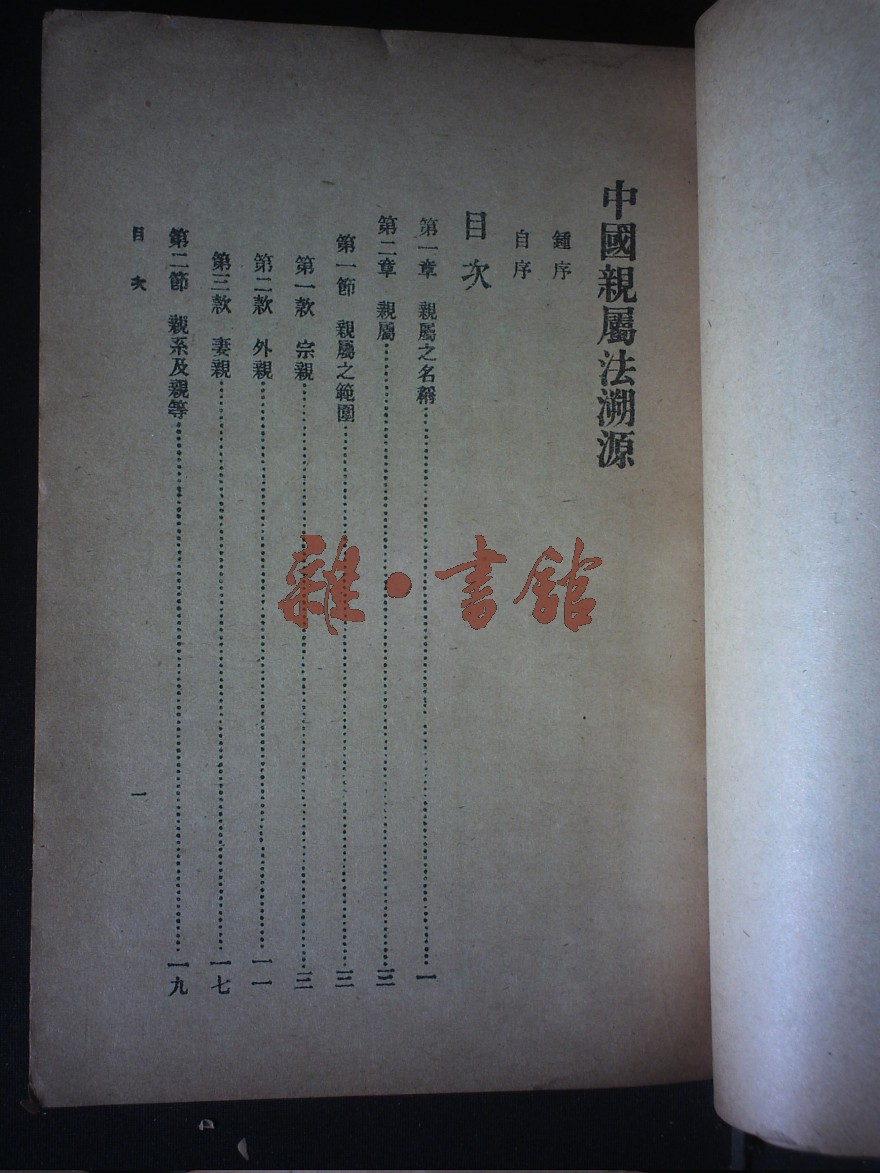 中國親屬法溯源
鍾序
自序
目次
第一章 親屬之名稱……一
第二章 親屬……三
第一節 親屬之範圍……三
第一款 宗親……三
第二款 外親……一一
第三款 妻親……一七
第二節 親系及親等……一九
目次 一
雜·書館